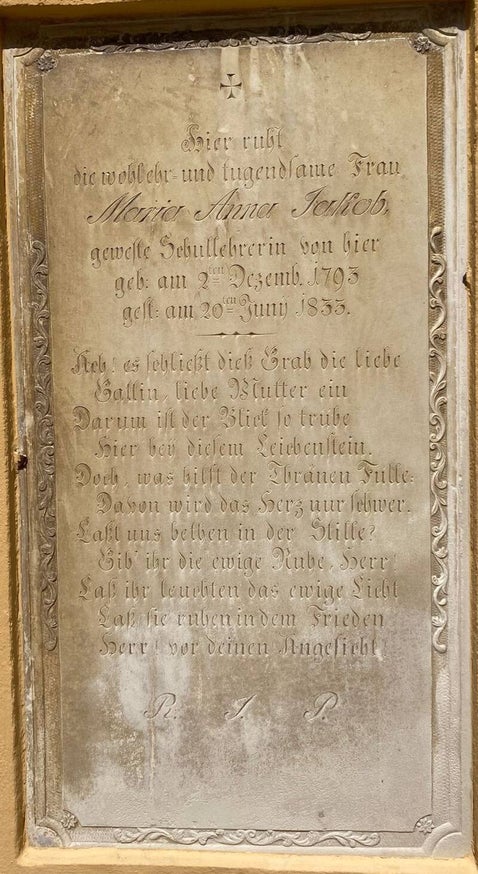 Hier ruht
die wohlehr- und tugendsame Frau
Maria Anna Jakob,
geweste Schullehrerin von hier
geb: am 2ten Dezemb. 1793
gest: am 20ten Juny 1833.
Ach! es schließt dieß Grab die liebe
Gattin, liebe Mutter ein
Darum ist der Blick so trübe
Hier bey diesem Leichenstein.
Doch, was hilft der Thränen Fülle:
Davon wird das Herz nur schwer.
Laßt uns bethen in der Stille?
Gib' ihr die ewige Ruhe, Herr!
Laß ihr leuchten das ewige Licht
Laß sie ruhen in dem Frieden
Herr! vor deinen Angesicht!
R. I. P.